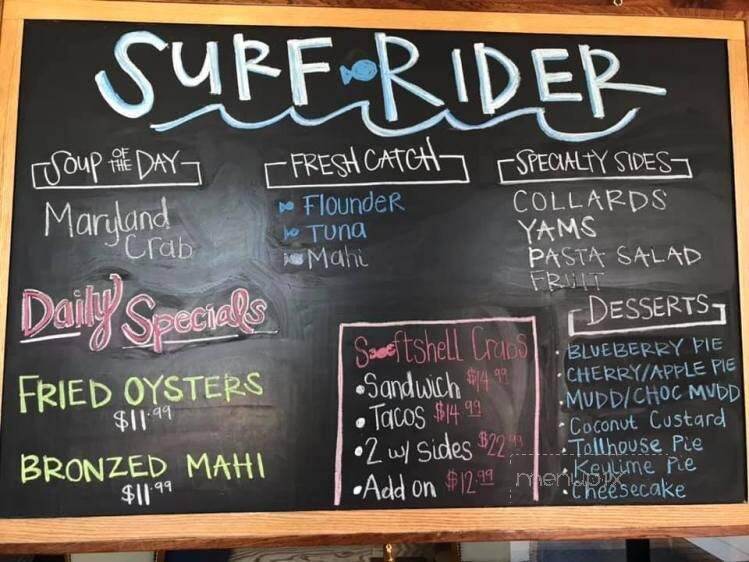 SURF RIDER
SOUP OF THE DAY
Maryland
Crab
FRESH CATCH
Flounder
Tuna
Mahi
SPECIALTY SIDES
COLLARDS
YAMS
PASTA SALAD
FRUIT
Daily Specials
FRIED OYSTERS
$11.99
BRONZED MAHI
$11.99
Softshell Crabs
• Sandwich $14.99
• Tacos $14.99
• 2 w/ sides $22.99
• Add on $12.99
DESSERTS
• BLUEBERRY PIE
• CHERRY/APPLE PIE
• MUDD/CHOC MUDD
• Coconut Custard
• Tollhouse Pie
• Keylime Pie
• Cheesecake
menupix